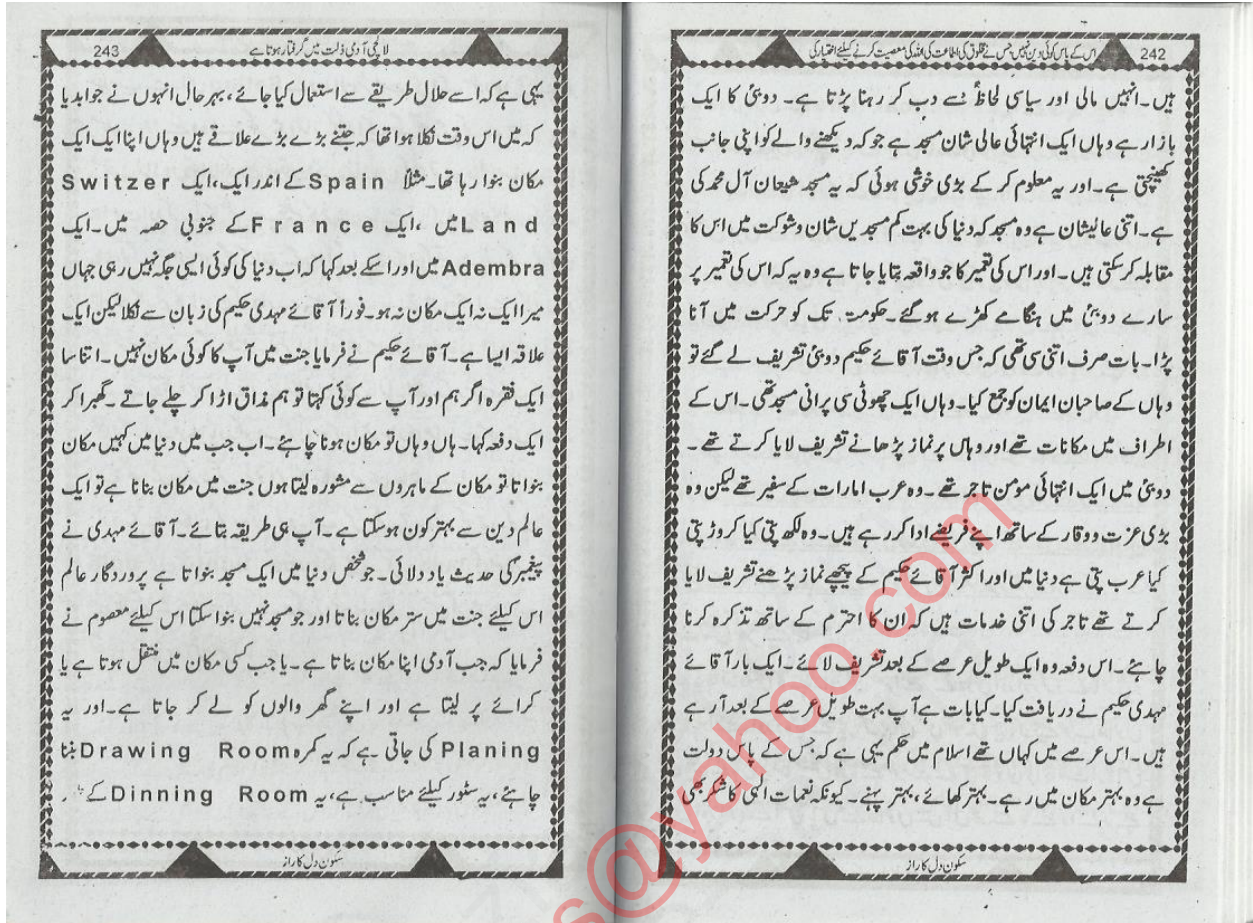 اس کے پاس کوئی دین نہیں جس نے مخلوق کی اطاعت کی اللہ کی معصیت کرنے کیلئے اختیار کی 242
ہیں۔ انہیں مالی اور سیاسی لحاظ سے دب کر رہنا پڑتا ہے۔ دوبئ کا ایک
بازار ہے وہاں ایک انتہائی عالی شان مسجد ہے جو کہ دیکھنے والے کو اپنی جانب
کھینچتی ہے۔ اور یہ معلوم کر کے بڑی خوشی ہوئی کہ یہ مسجد شیعان آل محمد کی
ہے۔ اتنی عالیشان ہے وہ مسجد کہ دنیا کی بہت کم مسجدیں شان وشوکت میں اس کا
مقابلہ کرسکتی ہیں۔ اور اس کی تعمیر کا جو واقعہ بتایا جاتا ہے وہ یہ کہ اس کی تعمیر پر
سارے دوبئ میں ہنگامے کھڑے ہوگئے۔ حکومت تک کو حرکت میں آنا
پڑا۔ بات صرف اتنی سی تھی کہ جس وقت آقائے حکیم دوبئ تشریف لے گئے تو
وہاں کے صاحبان ایمان کو جمع کیا۔ وہاں ایک چھوٹی سی پرانی مسجد تھی۔ اس کے
اطراف میں مکانات تھے اور وہاں پر نماز پڑھانے تشریف لایا کرتے تھے۔
دوبئ میں ایک انتہائی مومن تاجر تھے۔ وہ عرب امارات کے سفیر تھے لیکن وہ
بڑی عزت ووقار کے ساتھ اپنے فریضے ادا کر رہے ہیں۔ وہ لکھ پتی کیا کروڑ پتی
کیا عرب پتی ہے دنیا میں اور اکثر آقائے حکیم کے پیچھے نماز پڑھنے تشریف لایا
کرتے تھے تاجر کی اتنی خدمات ہیں کہ ان کا احترم کے ساتھ تذکرہ کرنا
چاہئے۔ اس دفعہ وہ ایک طویل عرصے کے بعد تشریف لائے۔ ایک بار آقائے
مہدی حکیم نے دریافت کیا۔ کیا بات ہے آپ بہت طویل عرصے کے بعد آرہے
ہیں۔ اس عرصے میں کہاں تھے اسلام میں حکم یہی ہے کہ جس کے پاس دولت
ہے وہ بہتر مکان میں رہے۔ بہتر کھائے، بہتر پہنے۔ کیونکہ نعمات الٰہی کا شکر بھی
سکون دل کا راز
لالچی آدمی ذلت میں گرفتار ہوتا ہے 243
یہی ہے کہ اسے حلال طریقے سے استعمال کیا جائے، بہرحال انہوں نے جوابدیا
کہ میں اس وقت نکلا ہوا تھا کہ جتنے بڑے بڑے علاقے ہیں وہاں اپنا ایک ایک
مکان بنوا رہا تھا۔ مثلاً Spain کے اندر ایک، ایک Switzer
Land میں، ایک France کے جنوبی حصہ میں۔ ایک
Adembra میں اور اسکے بعد کہا کہ اب دنیا کی کوئی ایسی جگہ نہیں رہی جہاں
میرا ایک نہ ایک مکان نہ ہو۔ فوراً آقائے مہدی حکیم کی زبان سے نکلا لیکن ایک
علاقہ ایسا ہے۔ آقائے حکیم نے فرمایا جنت میں آپ کا کوئی مکان نہیں۔ اتنا سا
ایک فقرہ اگر ہم اور آپ سے کوئی کہتا تو ہم مذاق اڑا کر چلے جاتے۔ گھبرا کر
ایک دفعہ کہا۔ ہاں وہاں تو مکان ہونا چاہئے۔ اب جب میں دنیا میں کہیں مکان
بنواتا تو مکان کے ماہروں سے مشورہ لیتا ہوں جنت میں مکان بنانا ہے تو ایک
عالم دین سے بہتر کون ہوسکتا ہے۔ آپ ہی طریقہ بتائے۔ آقائے مہدی نے
پیغمبر کی حدیث یاد دلائی۔ جو شخص دنیا میں ایک مسجد بنواتا ہے پروردگار عالم
اس کیلئے جنت میں ستر مکان بناتا اور جو مسجد نہیں بنوا سکتا اس کیلئے معصوم نے
فرمایا کہ جب آدمی اپنا مکان بناتا ہے۔ یا جب کسی مکان میں منتقل ہوتا ہے یا
کرائے پر لیتا ہے اور اپنے گھر والوں کو لے کر جاتا ہے۔ اور یہ
Planing کی جاتی ہے کہ یہ کمرہ Drawing Room بننا
چاہئے، یہ سٹور کیلئے مناسب ہے، یہ Dinning Room کے
سکون دل کا راز
s@yahoo.com